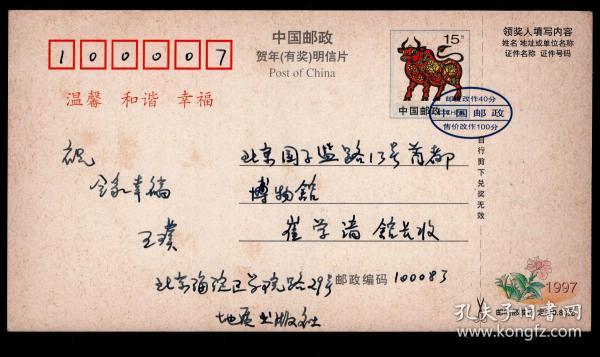 100007
中国邮政
贺年(有奖)明信片
Post of China
15分
中国邮政
邮资改作40分
中国邮政
售价改作100分
领奖人填写内容
姓名 地址或单位名称
证件名称 证件号码
温馨 和谐 幸福
祝
全家幸福
王璞
北京国子监路13号首都
博物馆
崔学谙 馆长收
北京海淀区学院路29号
地质出版社
邮政编码 100083
自行剪下兑奖无效
1997
孔夫子旧书网
www.kongfz.com